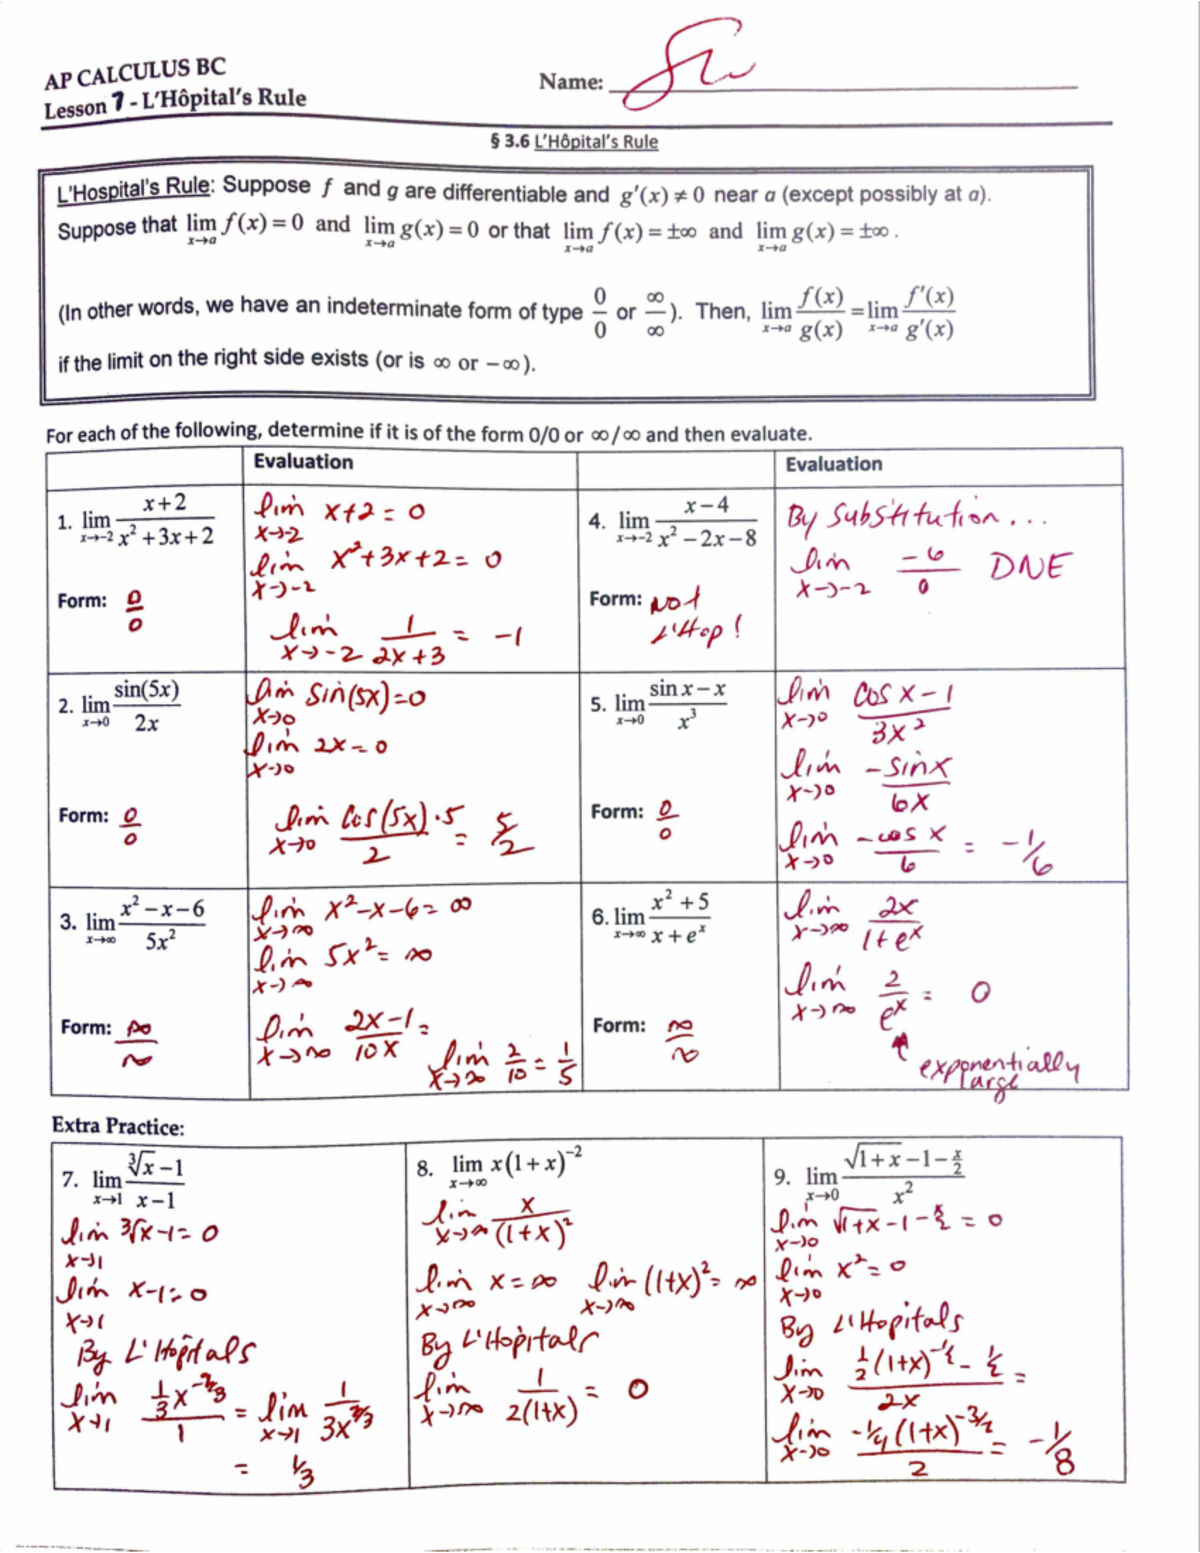 AP CALCULUS BC
Lesson 7 - L'Hôpital's Rule
Name:
§ 3.6 L'Hôpital's Rule
L'Hospital's Rule: Suppose f and g are differentiable and g'(x) ≠ 0 near a (except possibly at a).
Suppose that lim x→a f(x) = 0 and lim x→a g(x) = 0 or that lim x→a f(x) = ±∞ and lim x→a g(x) = ±∞.
(In other words, we have an indeterminate form of type 0/0 or ∞/∞). Then, lim x→a f(x)/g(x) = lim x→a f'(x)/g'(x)
if the limit on the right side exists (or is ∞ or −∞).
For each of the following, determine if it is of the form 0/0 or ∞/∞ and then evaluate.
Evaluation
Evaluation
1. lim x→-2 (x+2)/(x²+3x+2)
Form: 0/0
lim x→-2 x+2 = 0
lim x→-2 x²+3x+2 = 0
lim x→-2 1/(2x+3) = -1
4. lim x→-2 (x−4)/(x²−2x−8)
Form: Not
L'Hop!
By Substitution...
lim x→-2 -6/0 DNE
2. lim x→0 sin(5x)/2x
Form: 0/0
lim x→0 sin(5x)=0
lim x→0 2x=0
lim x→0 cos(5x)·5/2 = 5/2
5. lim x→0 (sin x − x)/x³
Form: 0/0
lim x→0 (cos x − 1)/3x²
lim x→0 -sinx/6x
lim x→0 -cos x/6 = -1/6
3. lim x→∞ (x²−x−6)/5x²
Form: ∞/∞
lim x→∞ x²-x-6 = ∞
lim x→∞ 5x² = ∞
lim x→∞ (2x-1)/10x =
lim x→∞ 2/10 = 1/5
6. lim x→∞ (x²+5)/(x+eˣ)
Form: ∞/∞
lim x→∞ 2x/(1+eˣ)
lim x→∞ 2/eˣ = 0
↑ exponentially
large
Extra Practice:
7. lim x→1 (∛x −1)/(x−1)
lim x→1 ∛x-1 = 0
lim x→1 x-1 = 0
By L'Hôpitals
lim x→1 (1/3 x^(-2/3))/1 = lim x→1 1/(3x^(2/3))
= 1/3
8. lim x→∞ x(1+x)⁻²
lim x→∞ x/(1+x)²
lim x→∞ x = ∞ lim x→∞ (1+x)² = ∞
By L'Hôpitals
lim x→∞ 1/(2(1+x)) = 0
9. lim x→0 (√(1+x) −1− x/2)/x²
lim x→0 √(1+x) -1 - x/2 = 0
lim x→0 x² = 0
By L'Hopitals
lim x→0 (1/2 (1+x)^(-1/2) - 1/2)/2x =
lim x→0 (-1/4 (1+x)^(-3/2))/2 = -1/8